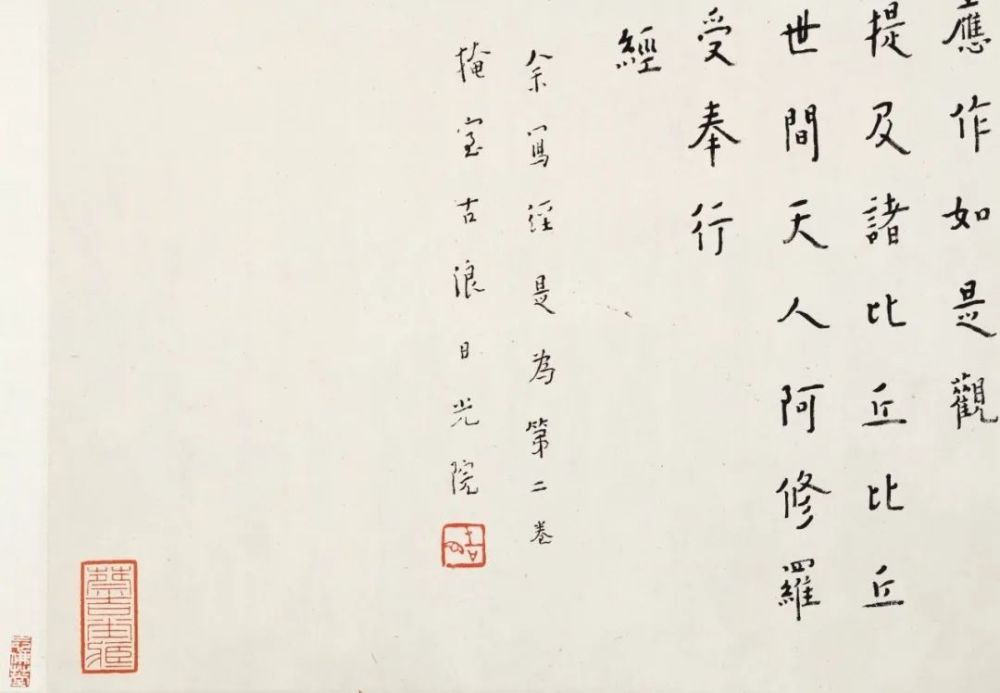 應作如是觀
提及諸比丘比丘
世間天人阿修羅
受奉行
經
余寫經是為第二卷
掩室古浪日光院